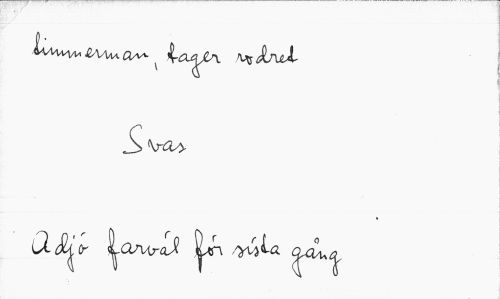 timmerman, tager rodret
Svas
Adjó farvál fór sísta gång